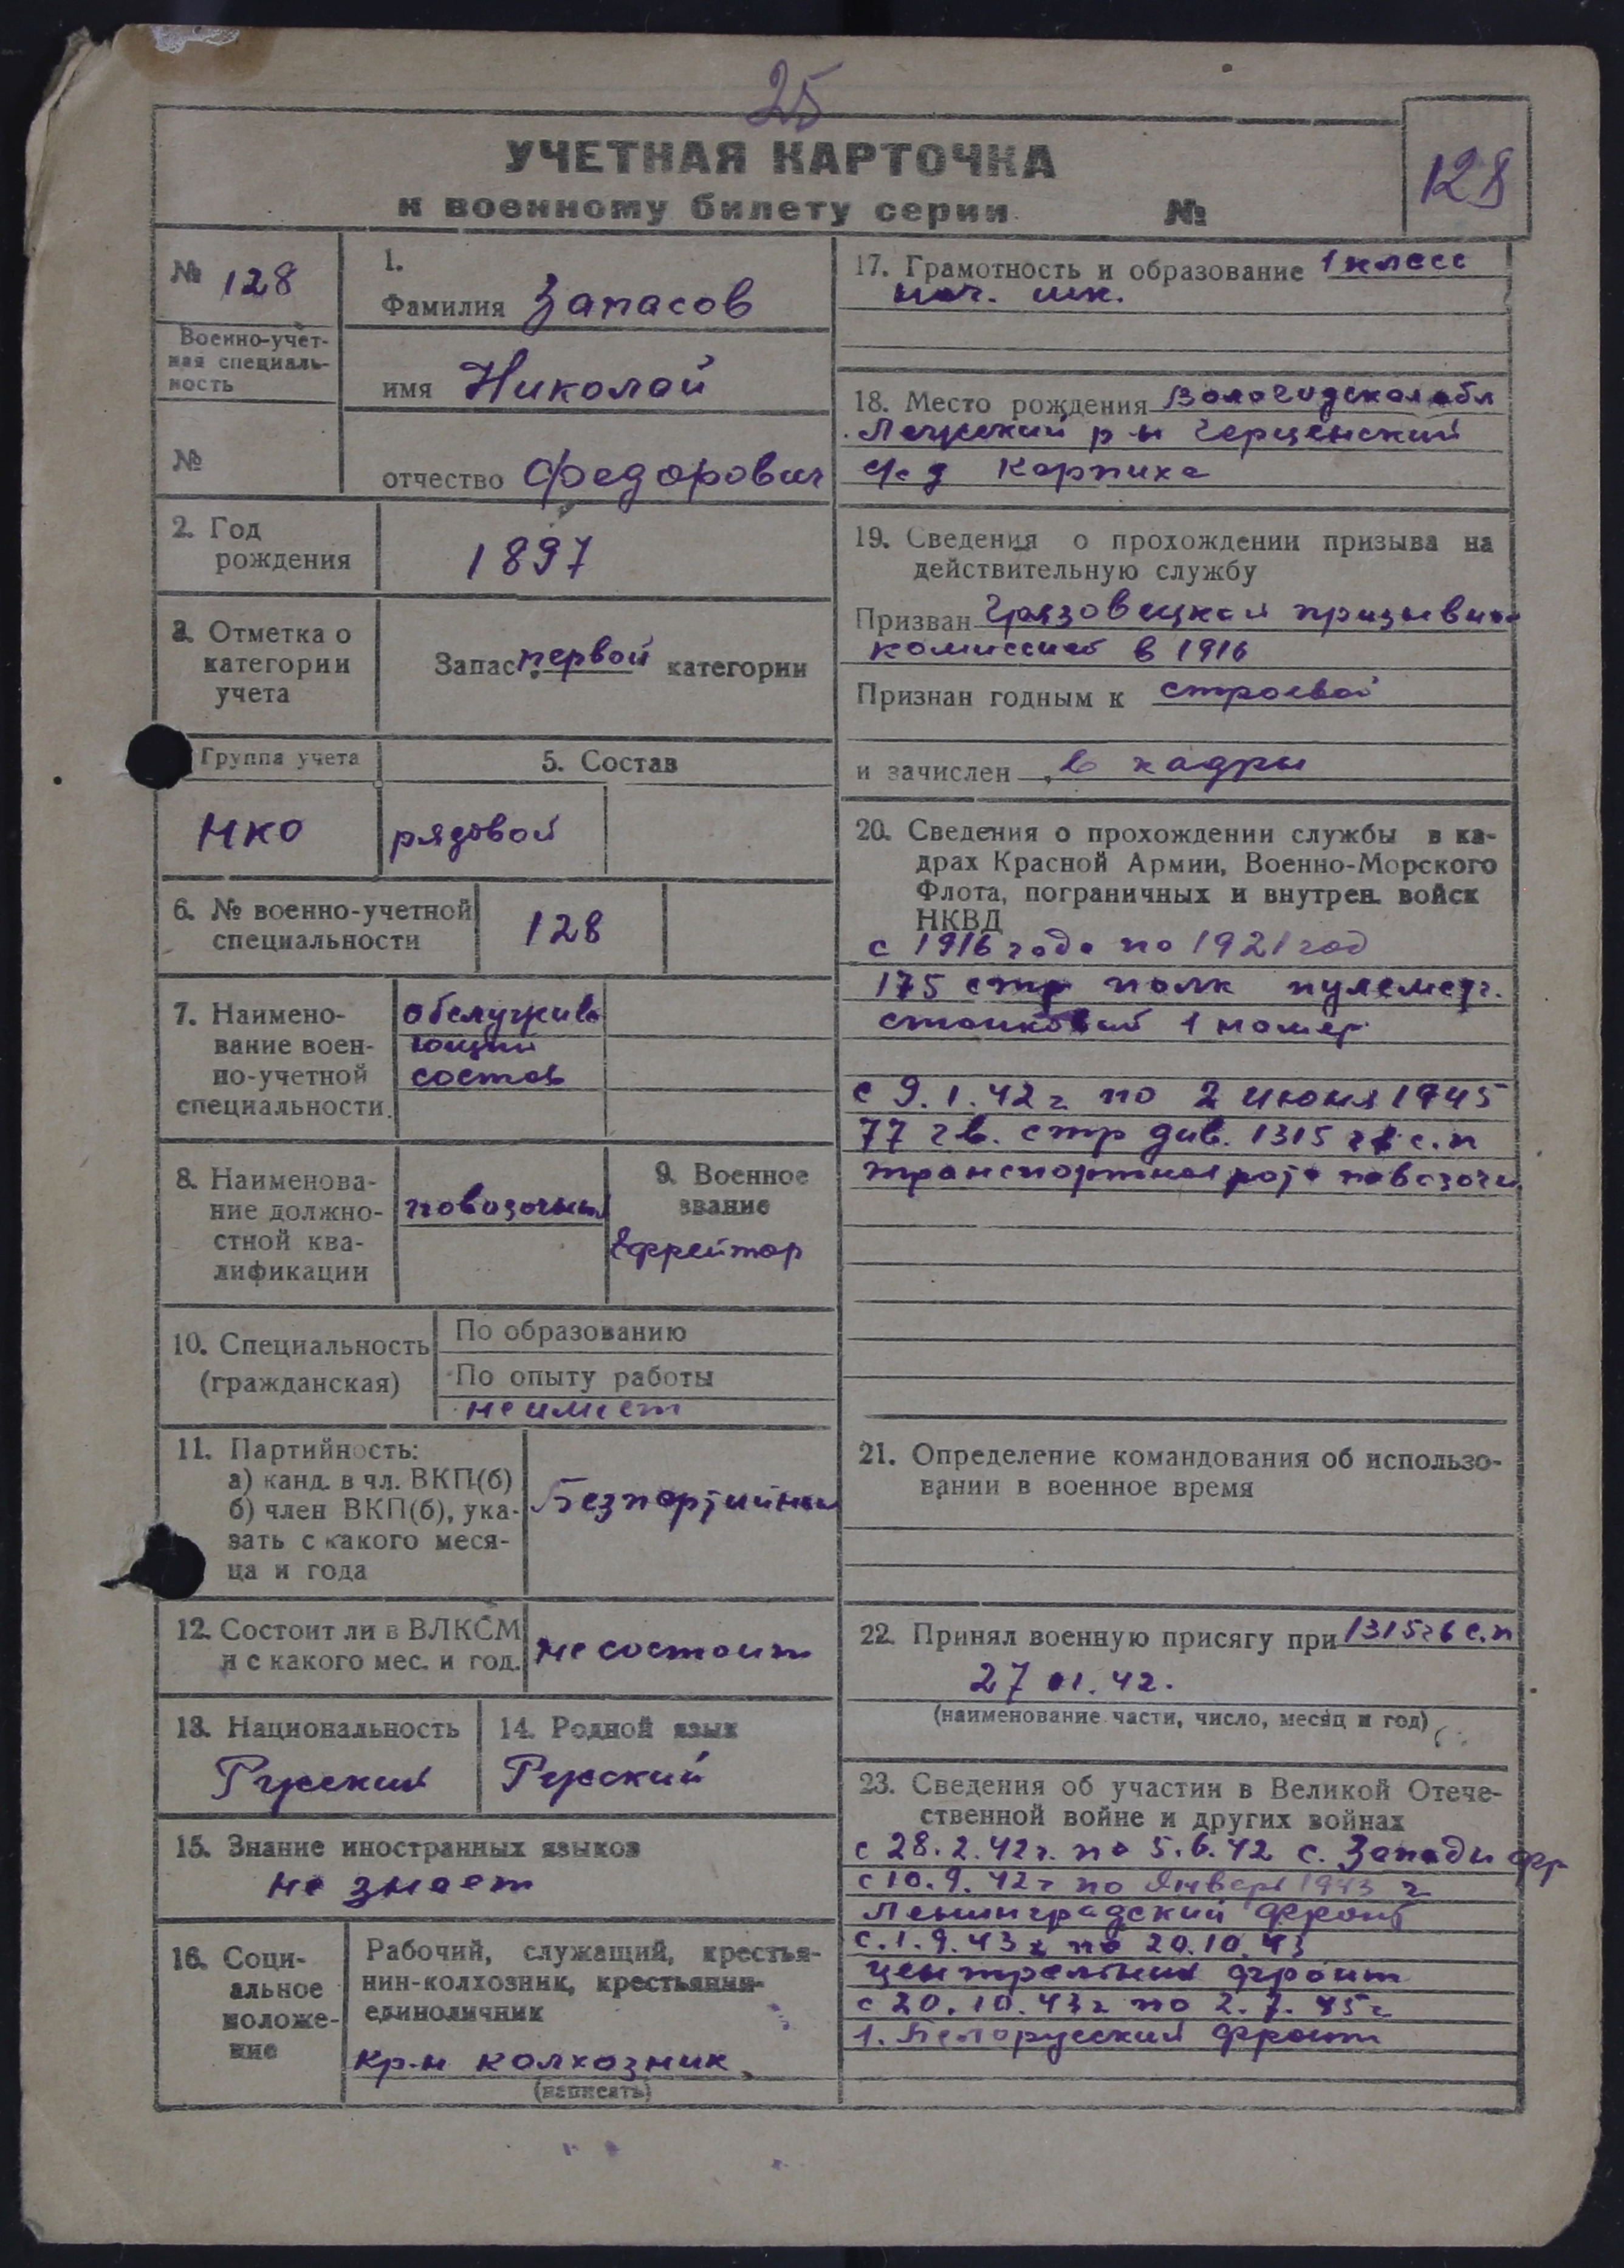 25
УЧЕТНАЯ КАРТОЧКА
к военному билету серии №
128
№ 128
Военно-учет-
ная специаль-
ность
№
1.
Фамилия Запасов
имя Николай
отчество Федорович
2. Год
рождения
1897
3. Отметка о
категории
учета
Запас первой категории
Группа учета
НКО
5. Состав
рядовой
6. № военно-учетной
специальности
128
7. Наимено-
вание воен-
но-учетной
специальности.
обслужива
ющий
состав
8. Наименова-
ние должно-
стной ква-
лификации
повозочный
9. Военное
звание
Ефрейтор
10. Специальность
(гражданская)
По образованию
По опыту работы
не имеет
11. Партийность:
а) канд. в чл. ВКП(б)
б) член ВКП(б), ука-
зать с какого меся-
ца и года
Безпортийный
12. Состоит ли в ВЛКСМ
и с какого мес. и год.
не состоит
13. Национальность
Русский
14. Родной язык
Русский
15. Знание иностранных языков
не знает
16. Соци-
альное
положе-
ние
Рабочий, служащий, крестья-
нин-колхозник, крестьянин-
единоличник
кр-н колхозник
(написать)
17. Грамотность и образование 1 класс
нач. шк.
18. Место рождения Вологодская обл
р-н
с/с д Карпиха
19. Сведения о прохождении призыва на
действительную службу
Призван Грязовецкой призывн
комиссией в 1916
Признан годным к строевой
и зачислен в кадры
20. Сведения о прохождении службы в ка-
драх Красной Армии, Военно-Морского
Флота, пограничных и внутрен. войск
НКВД
с 1916 года по 1921 год
175 стр полк пулеметч.
станковый 1 номер
с 9.1.42 г по 2 июня 1945
77 гв. стр див. 1315 гв с.п
транспортная рота повозочн
21. Определение командования об использо-
вании в военное время
22. Принял военную присягу при 1315 гв с.п
27 01. 42.
(наименование части, число, месяц и год)
23. Сведения об участии в Великой Отече-
ственной войне и других войнах
с 28.2.42 г. по 5.6.42 с. Западн фр
с 10.9.42 г по Январь 1943 г
Ленинградский Фронт
с.1.9.43 г по 20.10.43
центральный фронт
с 20.10.43 г по 2.7.45 г
1. Белорусский Фронт